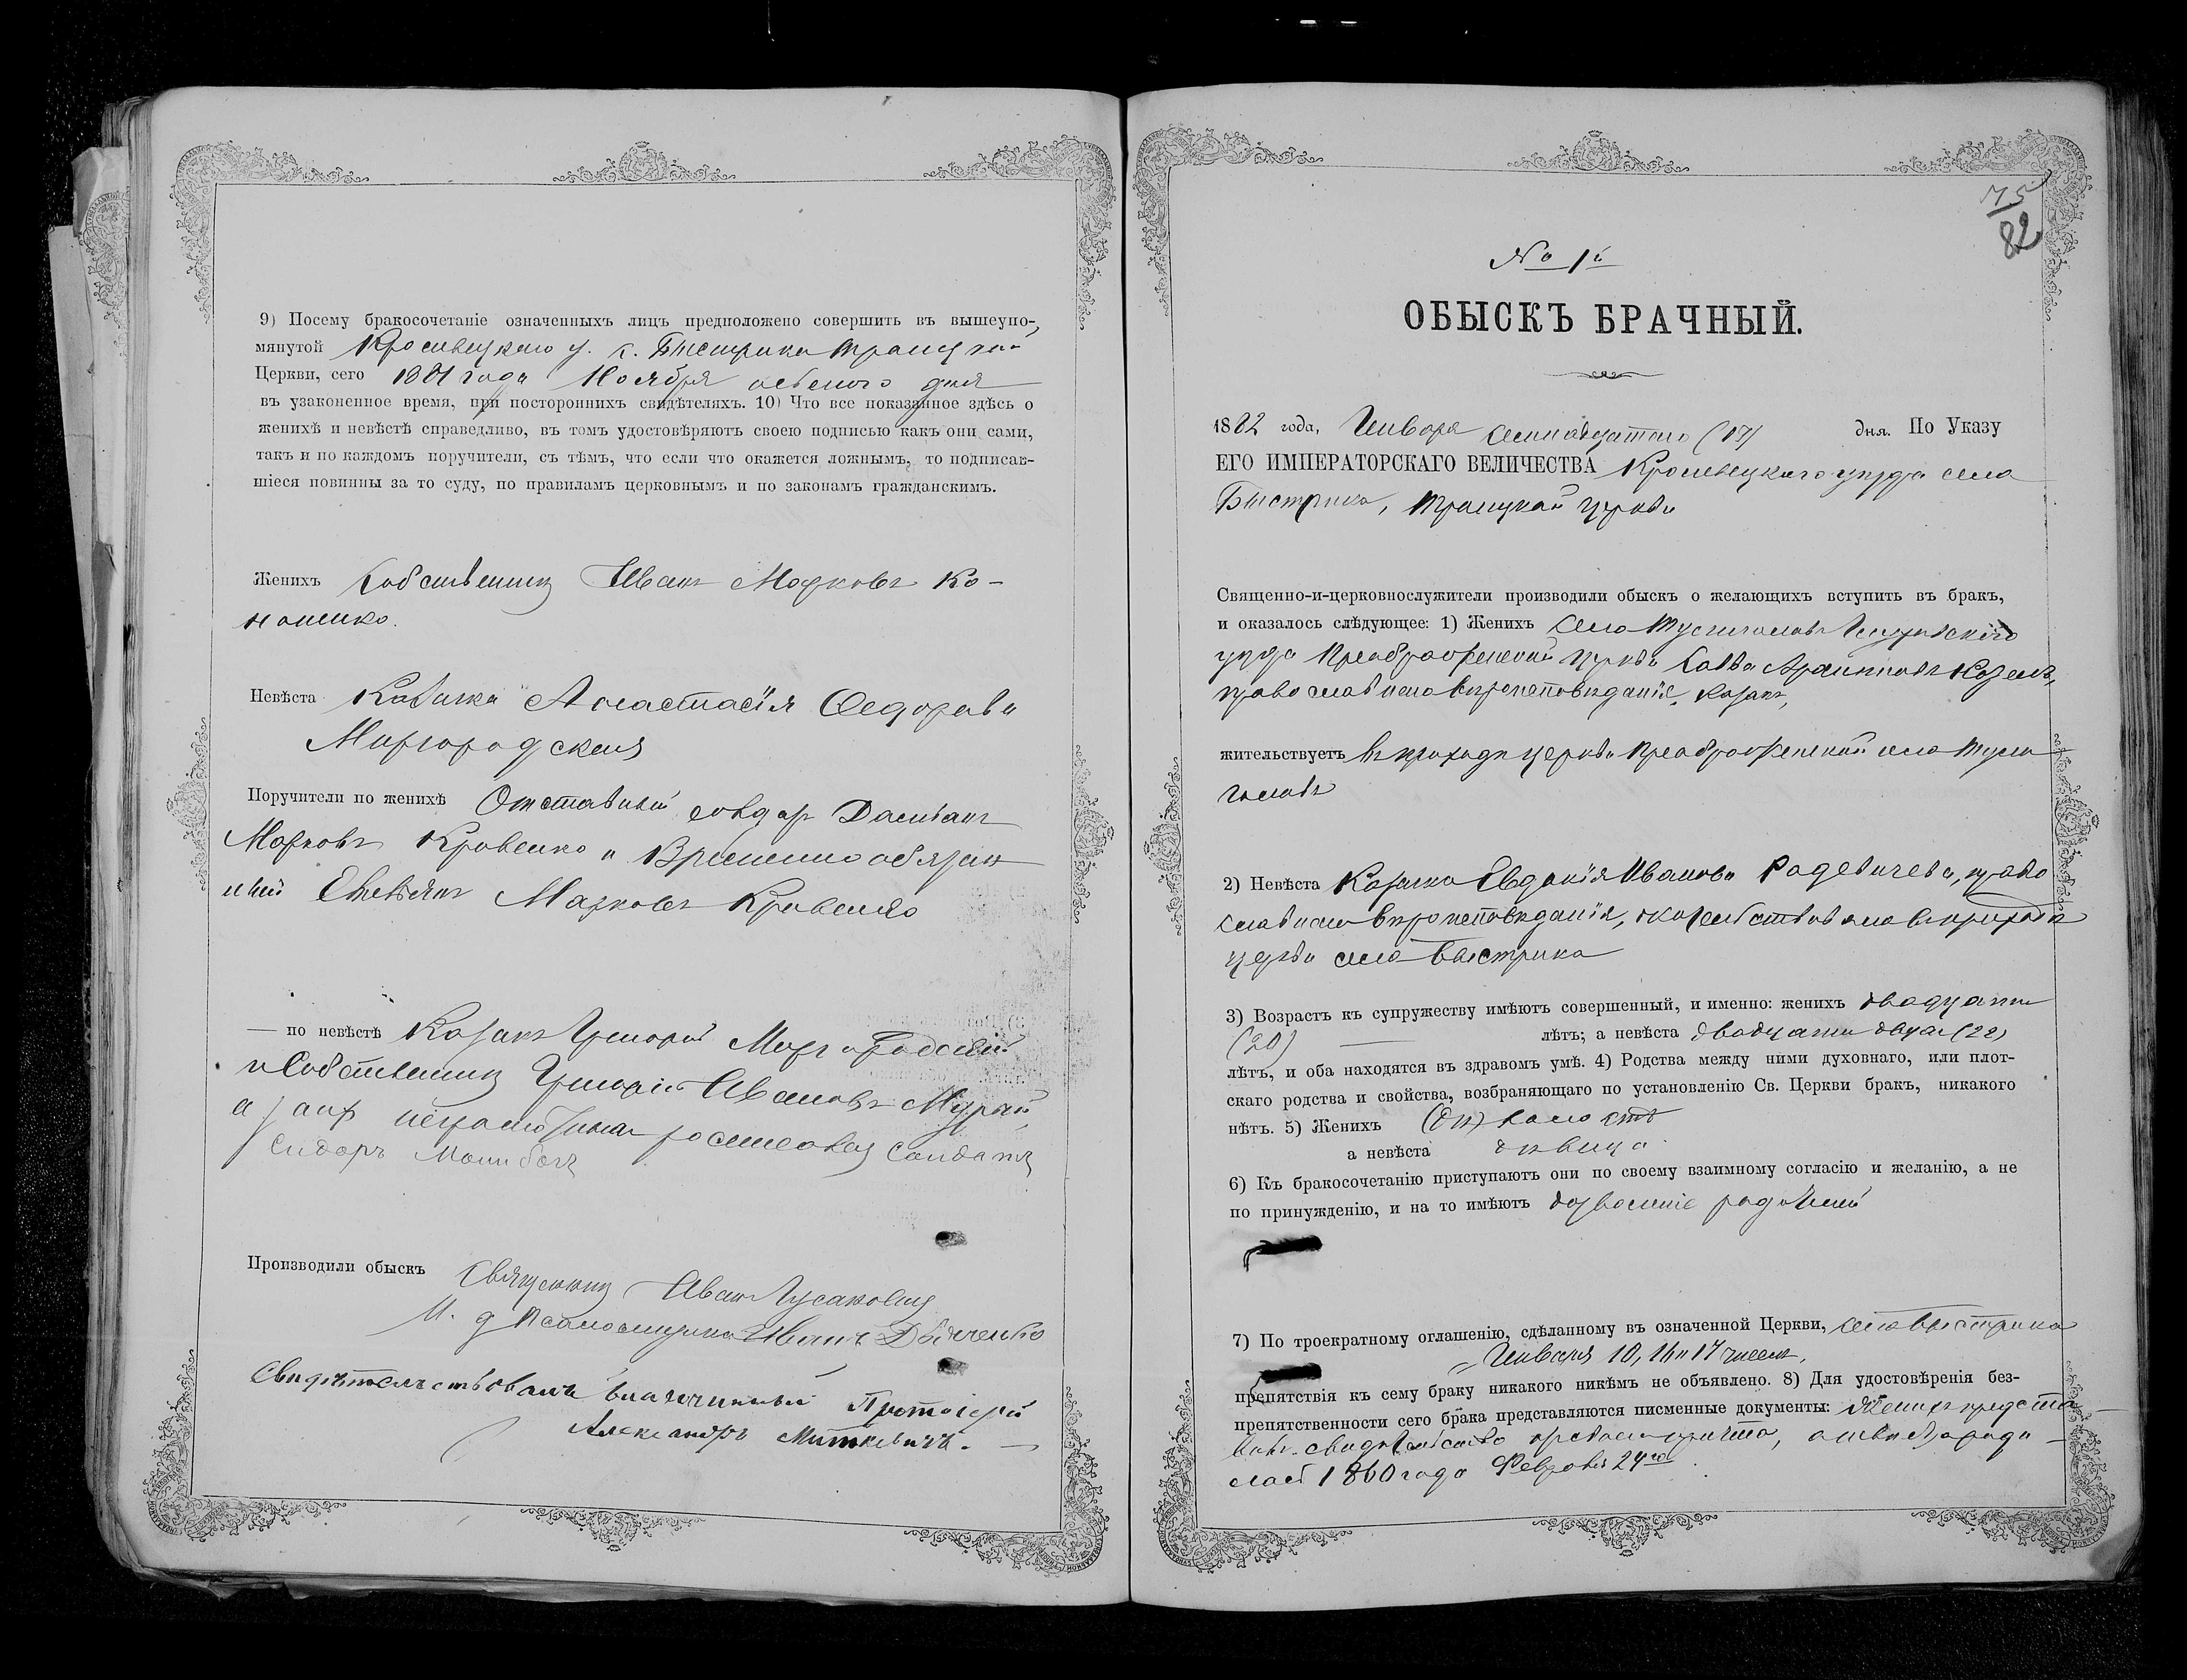 9) Посему бракосочетаніе означенныхъ лицъ предположено совершить въ вышеупо-
мянутой Кролевецкаго у. с. Быстрика Троицкой
Церкви, сего 1881 года Ноября осьмого дня
въ узаконенное время, при постороннихъ свидѣтеляхъ. 10) Что все показанное здѣсь о
женихѣ и невѣстѣ справедливо, въ томъ удостовѣряютъ своею подписью какъ они сами,
такъ и по каждомъ поручители, съ тѣмъ, что если что окажется ложнымъ, то подписав-
шіеся повинны за то суду, по правиламъ церковнымъ и по законамъ гражданскимъ.
Женихъ Собственникъ Иванъ Марковъ Ко-
ноненко.
Невѣста Козачка Анастасія Ѳедорова
Миргородская
Поручители по женихѣ Отставной солдат Даміанъ
Марковъ Кривенко и Временно обязан
ный Марковъ Кривенко
— по невѣстѣ Козакъ Григорій Миргородскій
и Собственникъ Григорій Ивановъ
а за них неграмотных росписался Солдатъ
Сидоръ
Производили обыскъ Священникъ Иван Гусаковскій
И. д. Псаломщика Иванъ Дьяченко
Свидѣтельствовалъ благочинный Протоіерей
Александръ Миткевичъ.
75
82
№ 1й
ОБЫСКЪ БРАЧНЫЙ.
1882 года, Января семнадцатого (17) дня. По Указу
ЕГО ИМПЕРАТОРСКАГО ВЕЛИЧЕСТВА Кролевецкаго уѣзда села
Быстрика, Троицкой церкви
Священно-и-церковнослужители производили обыскъ о желающихъ вступить въ бракъ,
и оказалось слѣдующее: 1) Женихъ села Тулиголовъ Глуховскаго
уѣзда Преображенской церкви Савва Козелъ,
православнаго вѣроисповѣданія, козакъ,
жительствуетъ въ приходѣ церкви Преображенской села Тули
головъ
2) Невѣста Козачка Евдокія Иванова Радевичева, право
славнаго вѣроисповѣданія, жительствовала въ приходѣ
церкви села Быстрика
3) Возрастъ къ супружеству имѣютъ совершенный, и именно: женихъ двадцати
(20) лѣтъ; а невѣста двадцати двухъ (22)
лѣтъ, и оба находятся въ здравомъ умѣ. 4) Родства между ними духовнаго, или плот-
скаго родства и свойства, возбраняющаго по установленію Св. Церкви бракъ, никакого
нѣтъ. 5) Женихъ холостъ
а невѣста дѣвица
6) Къ бракосочетанію приступаютъ они по своему взаимному согласію и желанію, а не
по принужденію, и на то имѣютъ дозволеніе родителей
7) По троекратному оглашенію, сдѣланному въ означенной Церкви, села Быстрика
Января 10, 16 и 17 чиселъ,
препятствія къ сему браку никакого никѣмъ не объявлено. 8) Для удостовѣренія без-
препятственности сего брака представляются писменные документы: Женихъ предста
вилъ свидѣтельство причта, а невѣста роди
лась 1860 года Февраля 24го